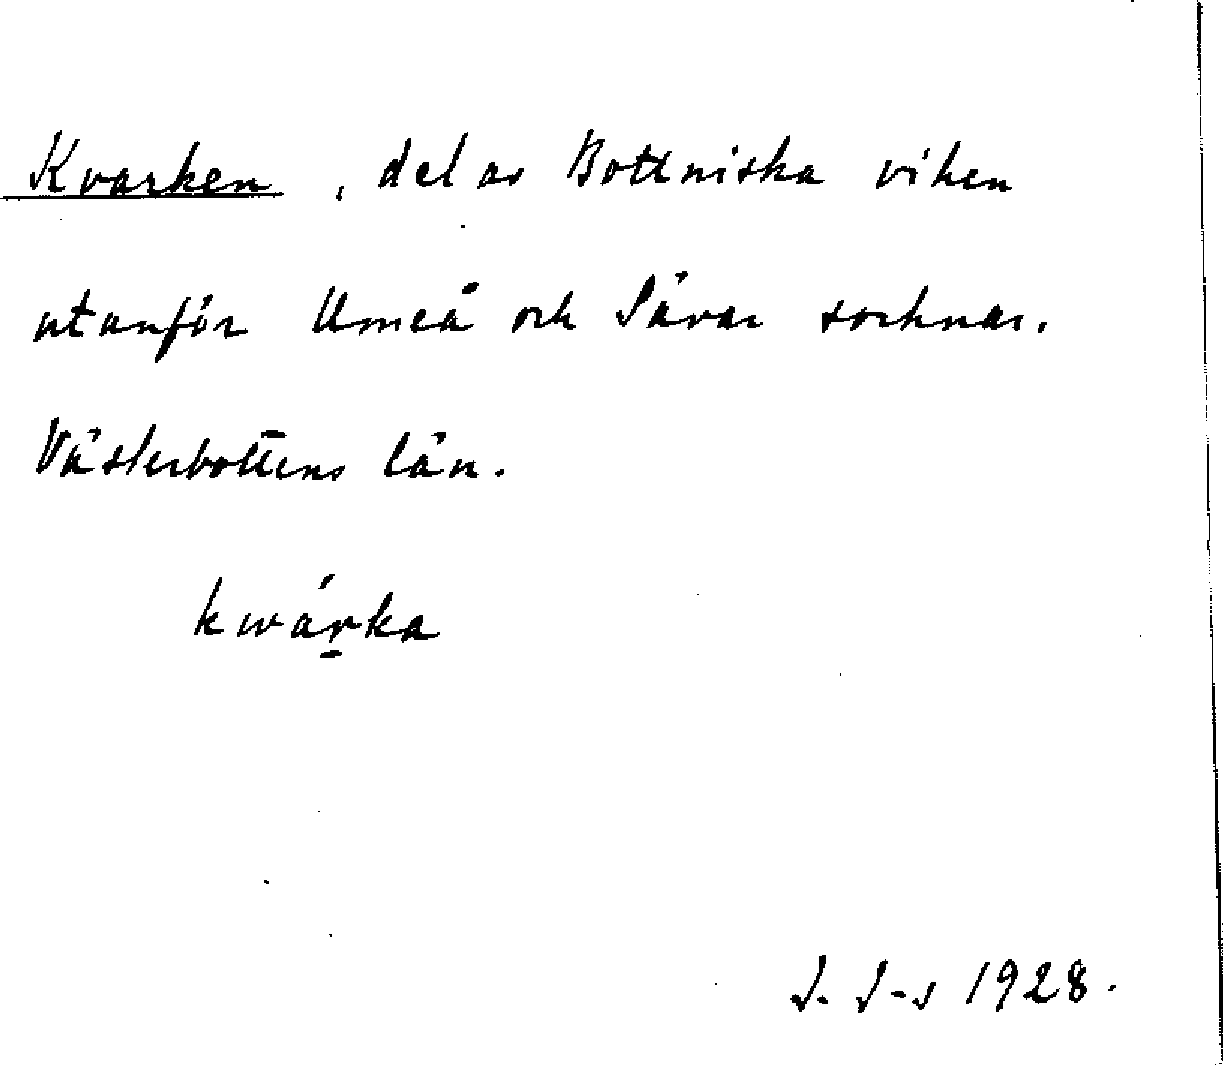 Kvarken, del av Bottniska viken
utanför Umeå och Sävar socknar.
Västerbottens län.
kwár̠ka
J. J-s 1928.